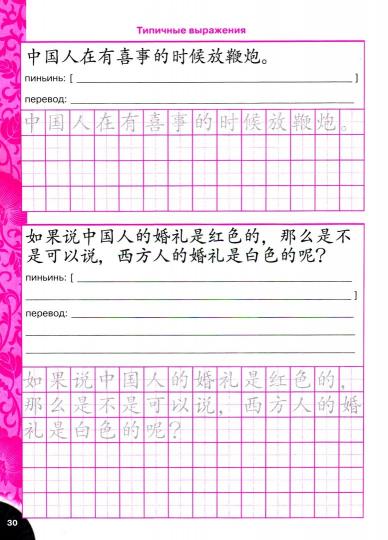 Типичные выражения
中国人在有喜事的时候放鞭炮。
пиньинь: [ ]
перевод:
中国人在有喜事的时候放鞭炮。
如果说中国人的婚礼是红色的，那么是不
是可以说，西方人的婚礼是白色的呢？
пиньинь: [
]
перевод:
如果说中国人的婚礼是红色的，
那么是不是可以说，西方人的婚
礼是白色的呢？
30